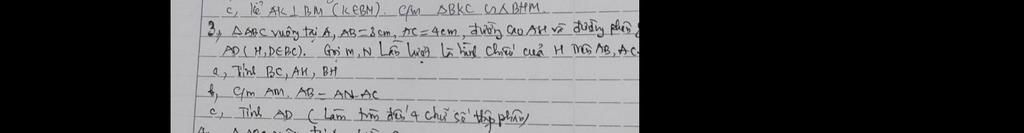 c, Kẻ AK ⊥ BM (K∈BM). C/m ΔBKC ∽ ΔBHM.
3, ΔABC vuông tại A, AB=3cm, AC=4cm, đường cao AH và đường phân
AD (H,D∈BC). Gọi M, N lần lượt là hình chiếu của H trên AB, AC.
a, Tính BC, AH, BH
b, C/m AM. AB = AN.AC
c, Tính AD (Làm tròn đến 4 chữ số thập phân)